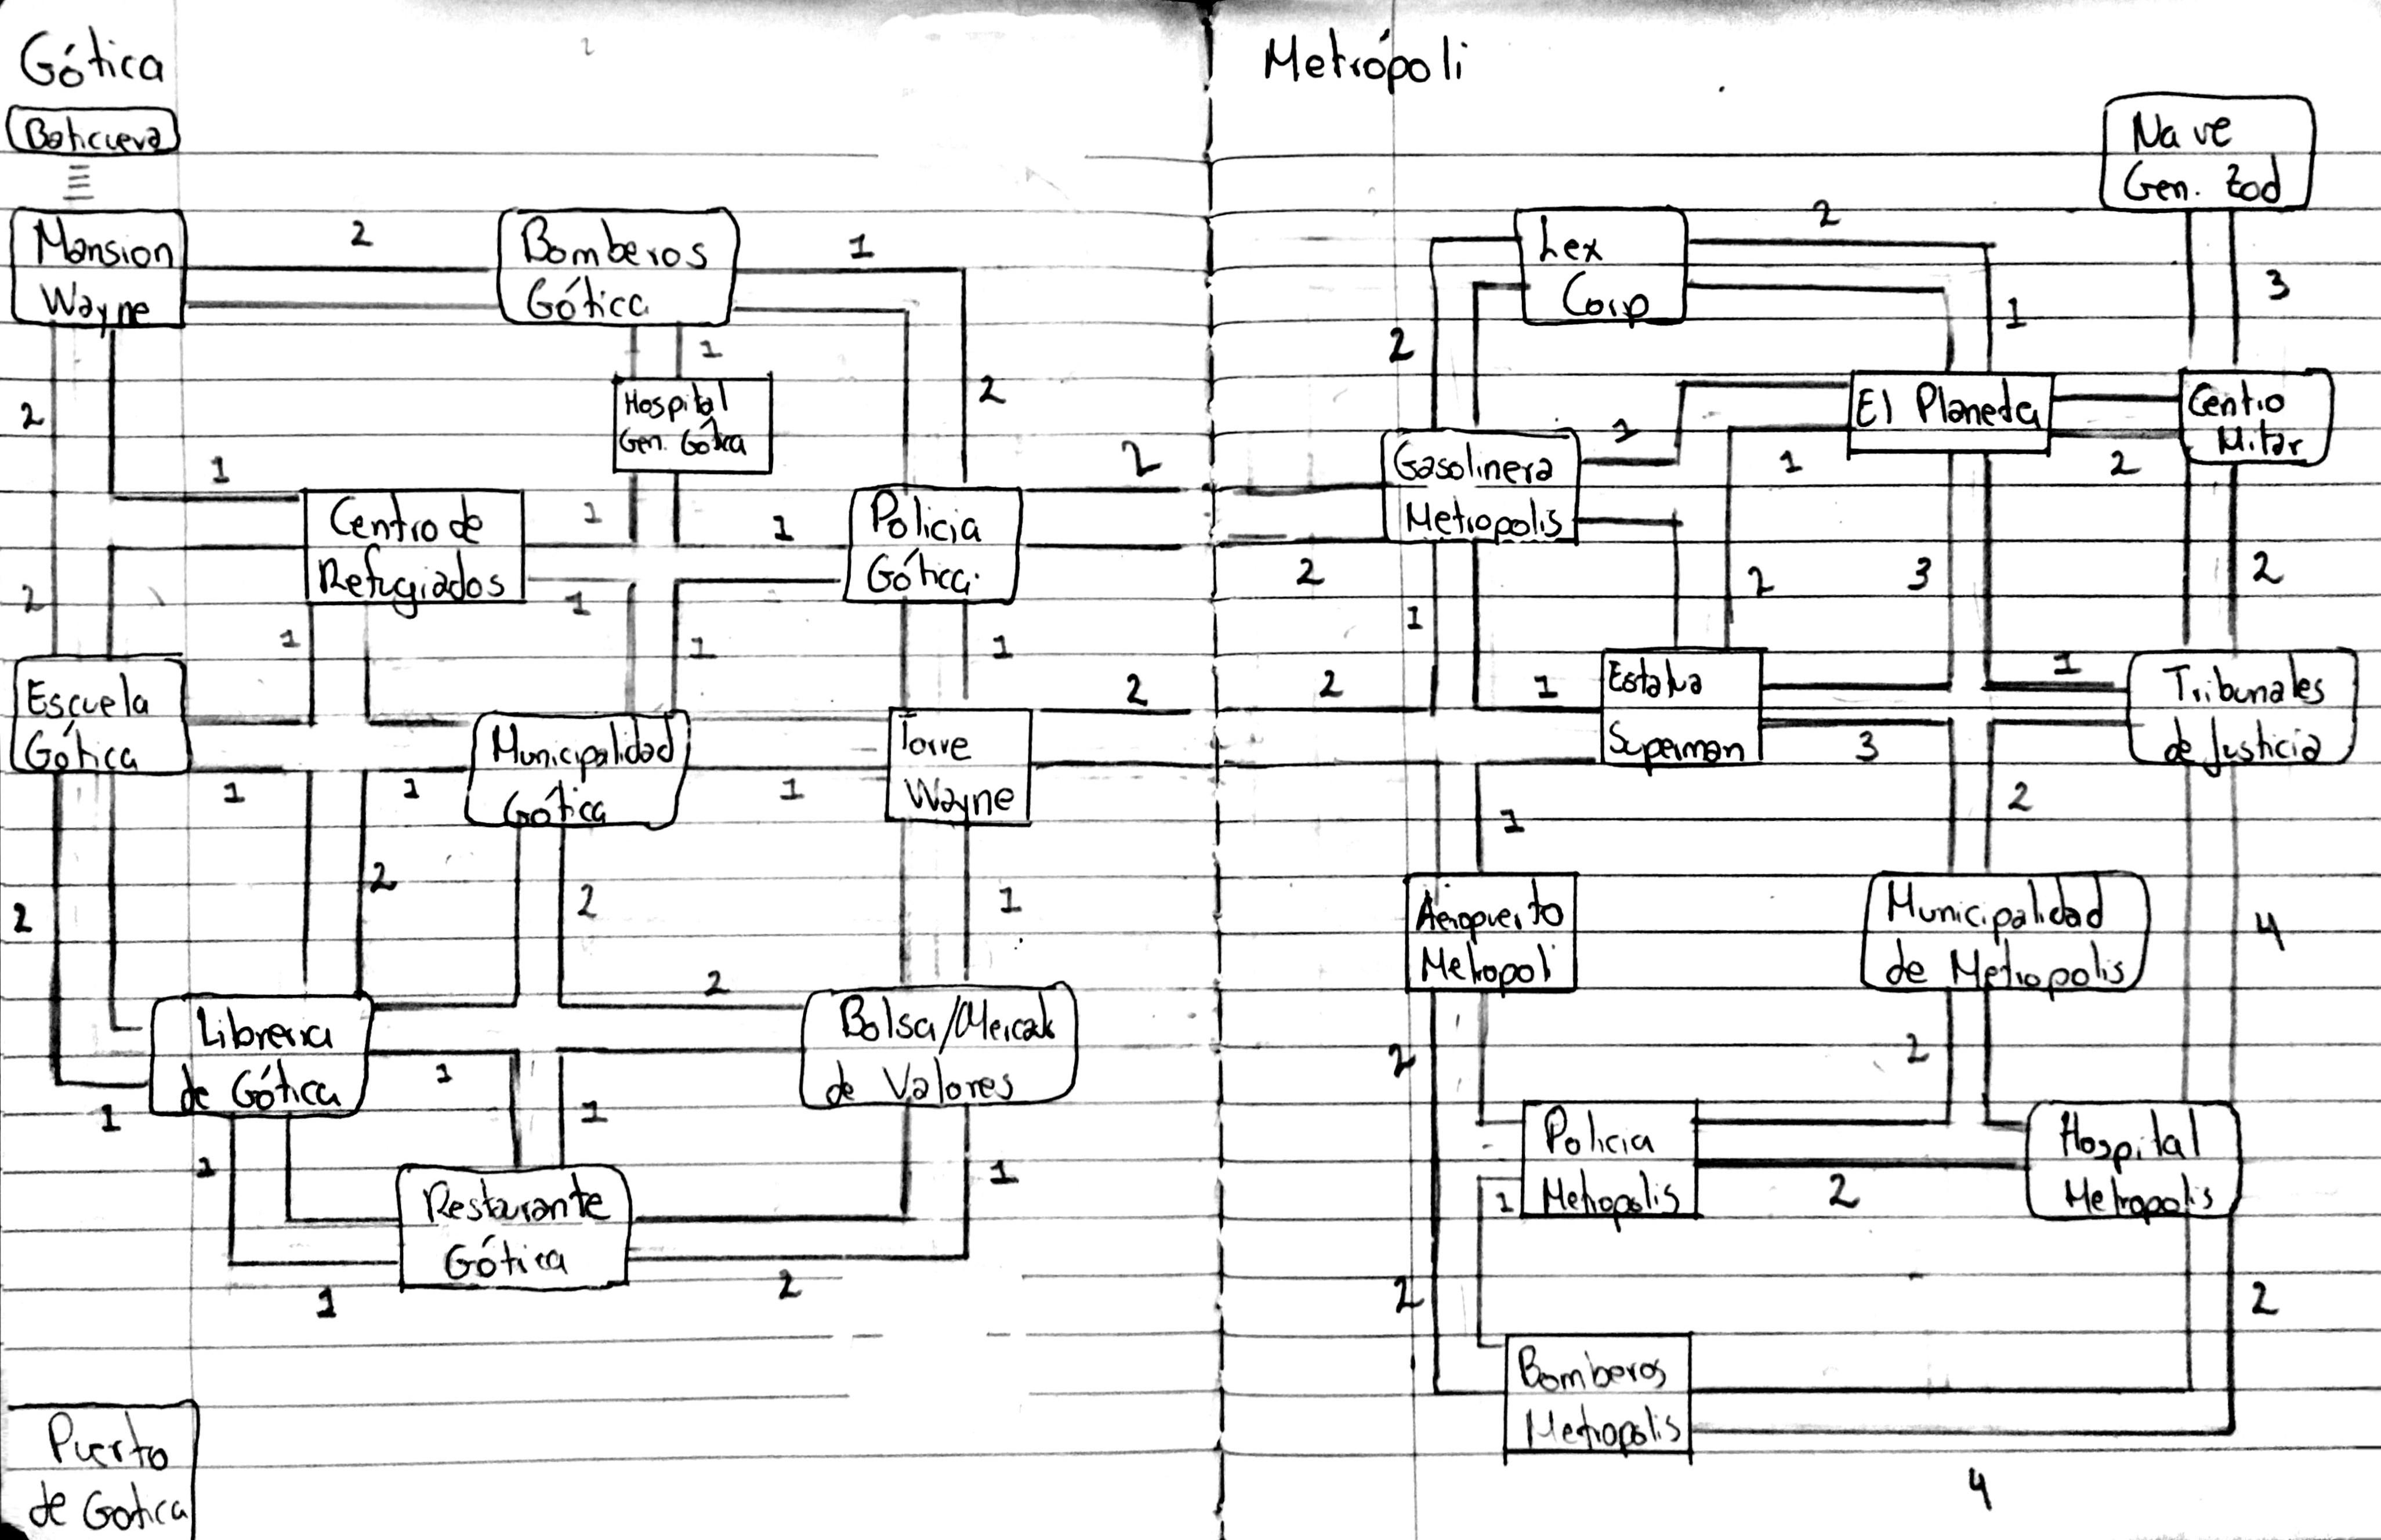 Gótica
Baticueva
Mansion
Wayne
2
Bomberos
Gótica
1
1
2
Hospital
Gen. Gótica
2
1
2
Centro de
Refugiados
1
1
1
1
1
Policia
Gótica
2
1
1
Escuela
Gótica
1
1
Municipalidad
Gótica
1
Torre
Wayne
2
2
2
2
1
2
Libreria
de Gótica
1
1
1
1
2
Bolsa/Mercado
de Valores
Restaurante
Gótica
1
1
2
Puerto
de Gotica
Metrópoli
Nave
Gen. Zod
Lex
Corp
2
3
2
1
El Planeta
Centro
Militar
1
1
2
Gasolinera
Metropolis
2
1
2
3
2
Estatua
Superman
2
1
1
3
Tribunales
de Justicia
1
2
4
Aeropuerto
Metropoli
Municipalidad
de Metropolis
2
2
Policia
Metropolis
1
2
Hospital
Metropolis
2
2
Bomberos
Metropolis
4